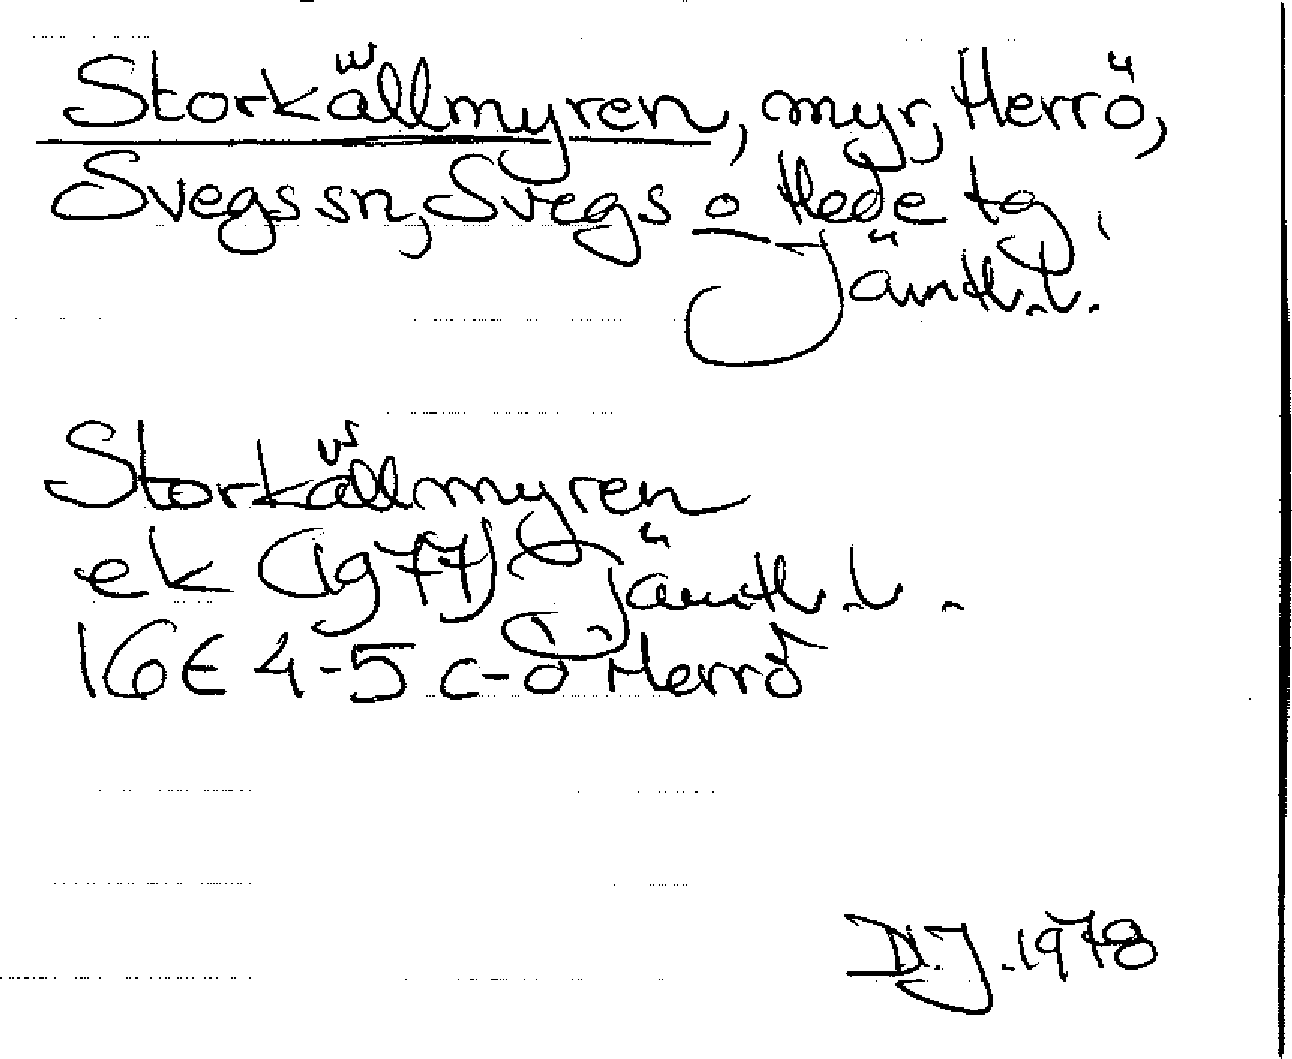 Storkällmyren, myr, Herrö,
Svegs sn, Svegs o Hede tg,
Jämtl. l.
Storkällmyren
ek (1977) Jämtl. l.
16E 4-5 c-d Herrö
D.J. 1978